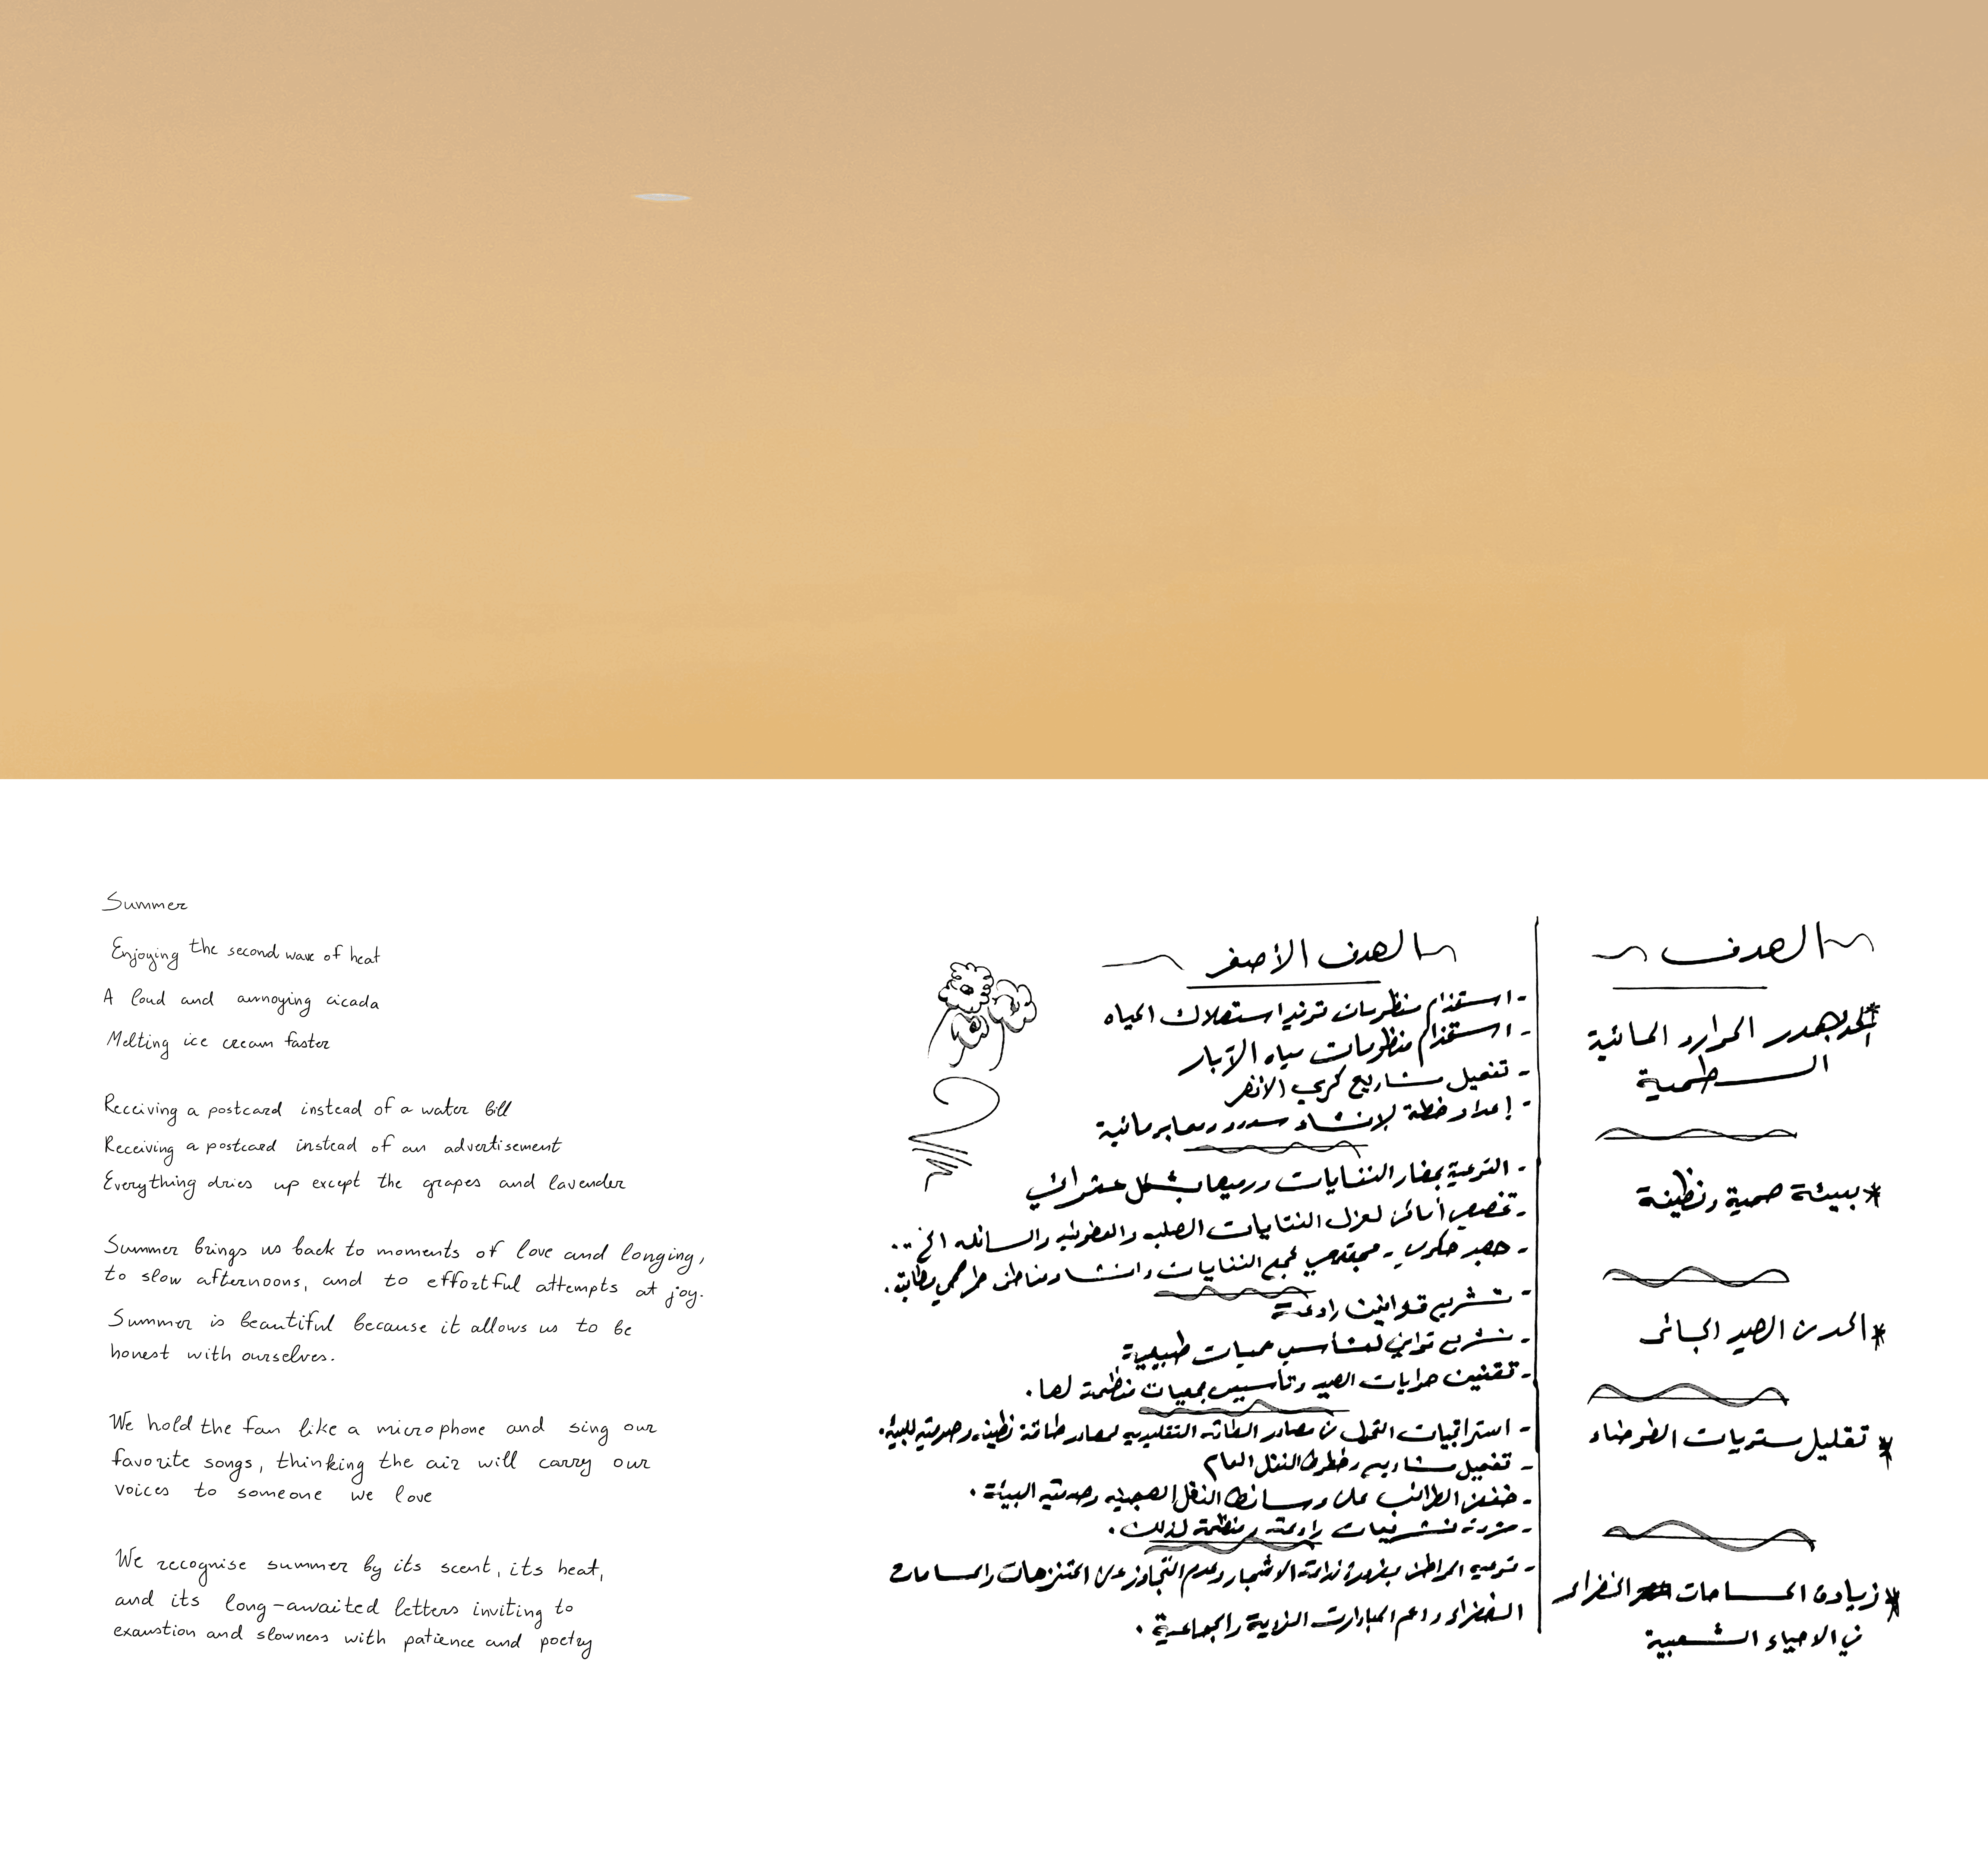 Summer
Enjoying the second wave of heat
A loud and annoying cicada
Melting ice cream faster
Receiving a postcard instead of a water bill
Receiving a postcard instead of an advertisement
Everything dries up except the grapes and lavender
Summer brings us back to moments of love and longing,
to slow afternoons, and to effortful attempts at joy.
Summer is beautiful because it allows us to be
honest with ourselves.
We hold the fan like a microphone and sing our
favorite songs, thinking the air will carry our
voices to someone we love
We recognise summer by its scent, its heat,
and its long-awaited letters inviting to
exaustion and slowness with patience and poetry
الهدف
هدر الموارد المائية
السطحية
* بيئة صحية ونظيفة
* الحد من الصيد الجائر
* تقليل مستويات الضوضاء
* زيادة المساحات الخضراء
في الاحياء الشعبية
الهدف الأصغر
- استخدام منظومات ترشيد استهلاك المياه
- استخدام منظومات مياه الآبار
- تفعيل مشاريع كري الأنهر
- إعداد خطة لإنشاء سدود ومعابر مائية
- التوعية بمضار النفايات ورميها بشكل عشوائي
- تخصيص أماكن لعزل النفايات الصلبه والعضويه والسائله الخ ..
- جهد حكومي - مجتمعي لجمع النفايات وانشاء مناطق طمر صحي
- تشريع قوانين رادعة
- تشريع قوانين لتأسيس محميات طبيعية
- تقنين هوايات الصيد وتأسيس جمعيات منظمة لها.
- استراتيجيات التحول من مصادر الطاقه التقليديه لمصادر طاقة نظيفه وصديقه للبيئه.
- تفعيل مشاريع وخطوط النقل العام
- خفض الضرائب على وسائط النقل الهجينه وصديقه البيئة.
- تشريعات رادعة ومنظمة لذلك.
- توعيه المواطن بضرورة زراعة الاشجار وعدم التجاوز على المتنزهات والمساحات
الخضراء ودعم المبادرات الفردية والجماعية.